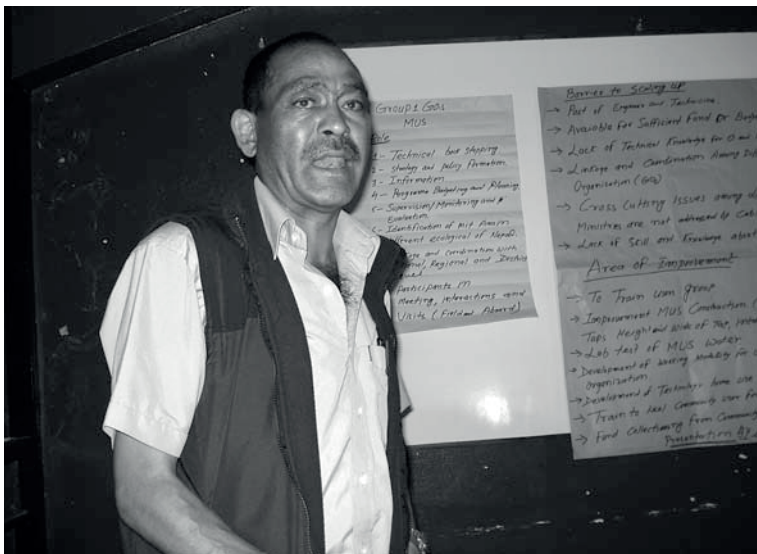 Group 1 GOs
MUS
Role
1- Technical back stopping
2- Strategy and policy formation
3- Information
4- Programme Budgeting and Planning
5- Supervision/Monitoring and
Evaluation
6- Identification of
different ecological of Nepal.
and combination with
Regional and
Participants in
Meeting, interactions and
Visits (Field and Aboard)
Barrier to Scaling up
→ of Engineer and Technicians.
→ Available for Sufficient Fund or
→ Lack of Technical Knowledge for O and
→ Linkage and Coordination Among
Organisation (GOs)
→ Cross Cutting Issues among
Ministries are not addressed
→ Lack of Skill and Knowledge about
Area of Improvement
→ To Train user group
→ Improvement MUS Construction (
Taps Height and of Tap,
→ Lab test of MUS Water
→ Development of working Modality for
Organization
→ Development of Technology
→ Train to local community
→ Fund Collection from Community
Presentation By